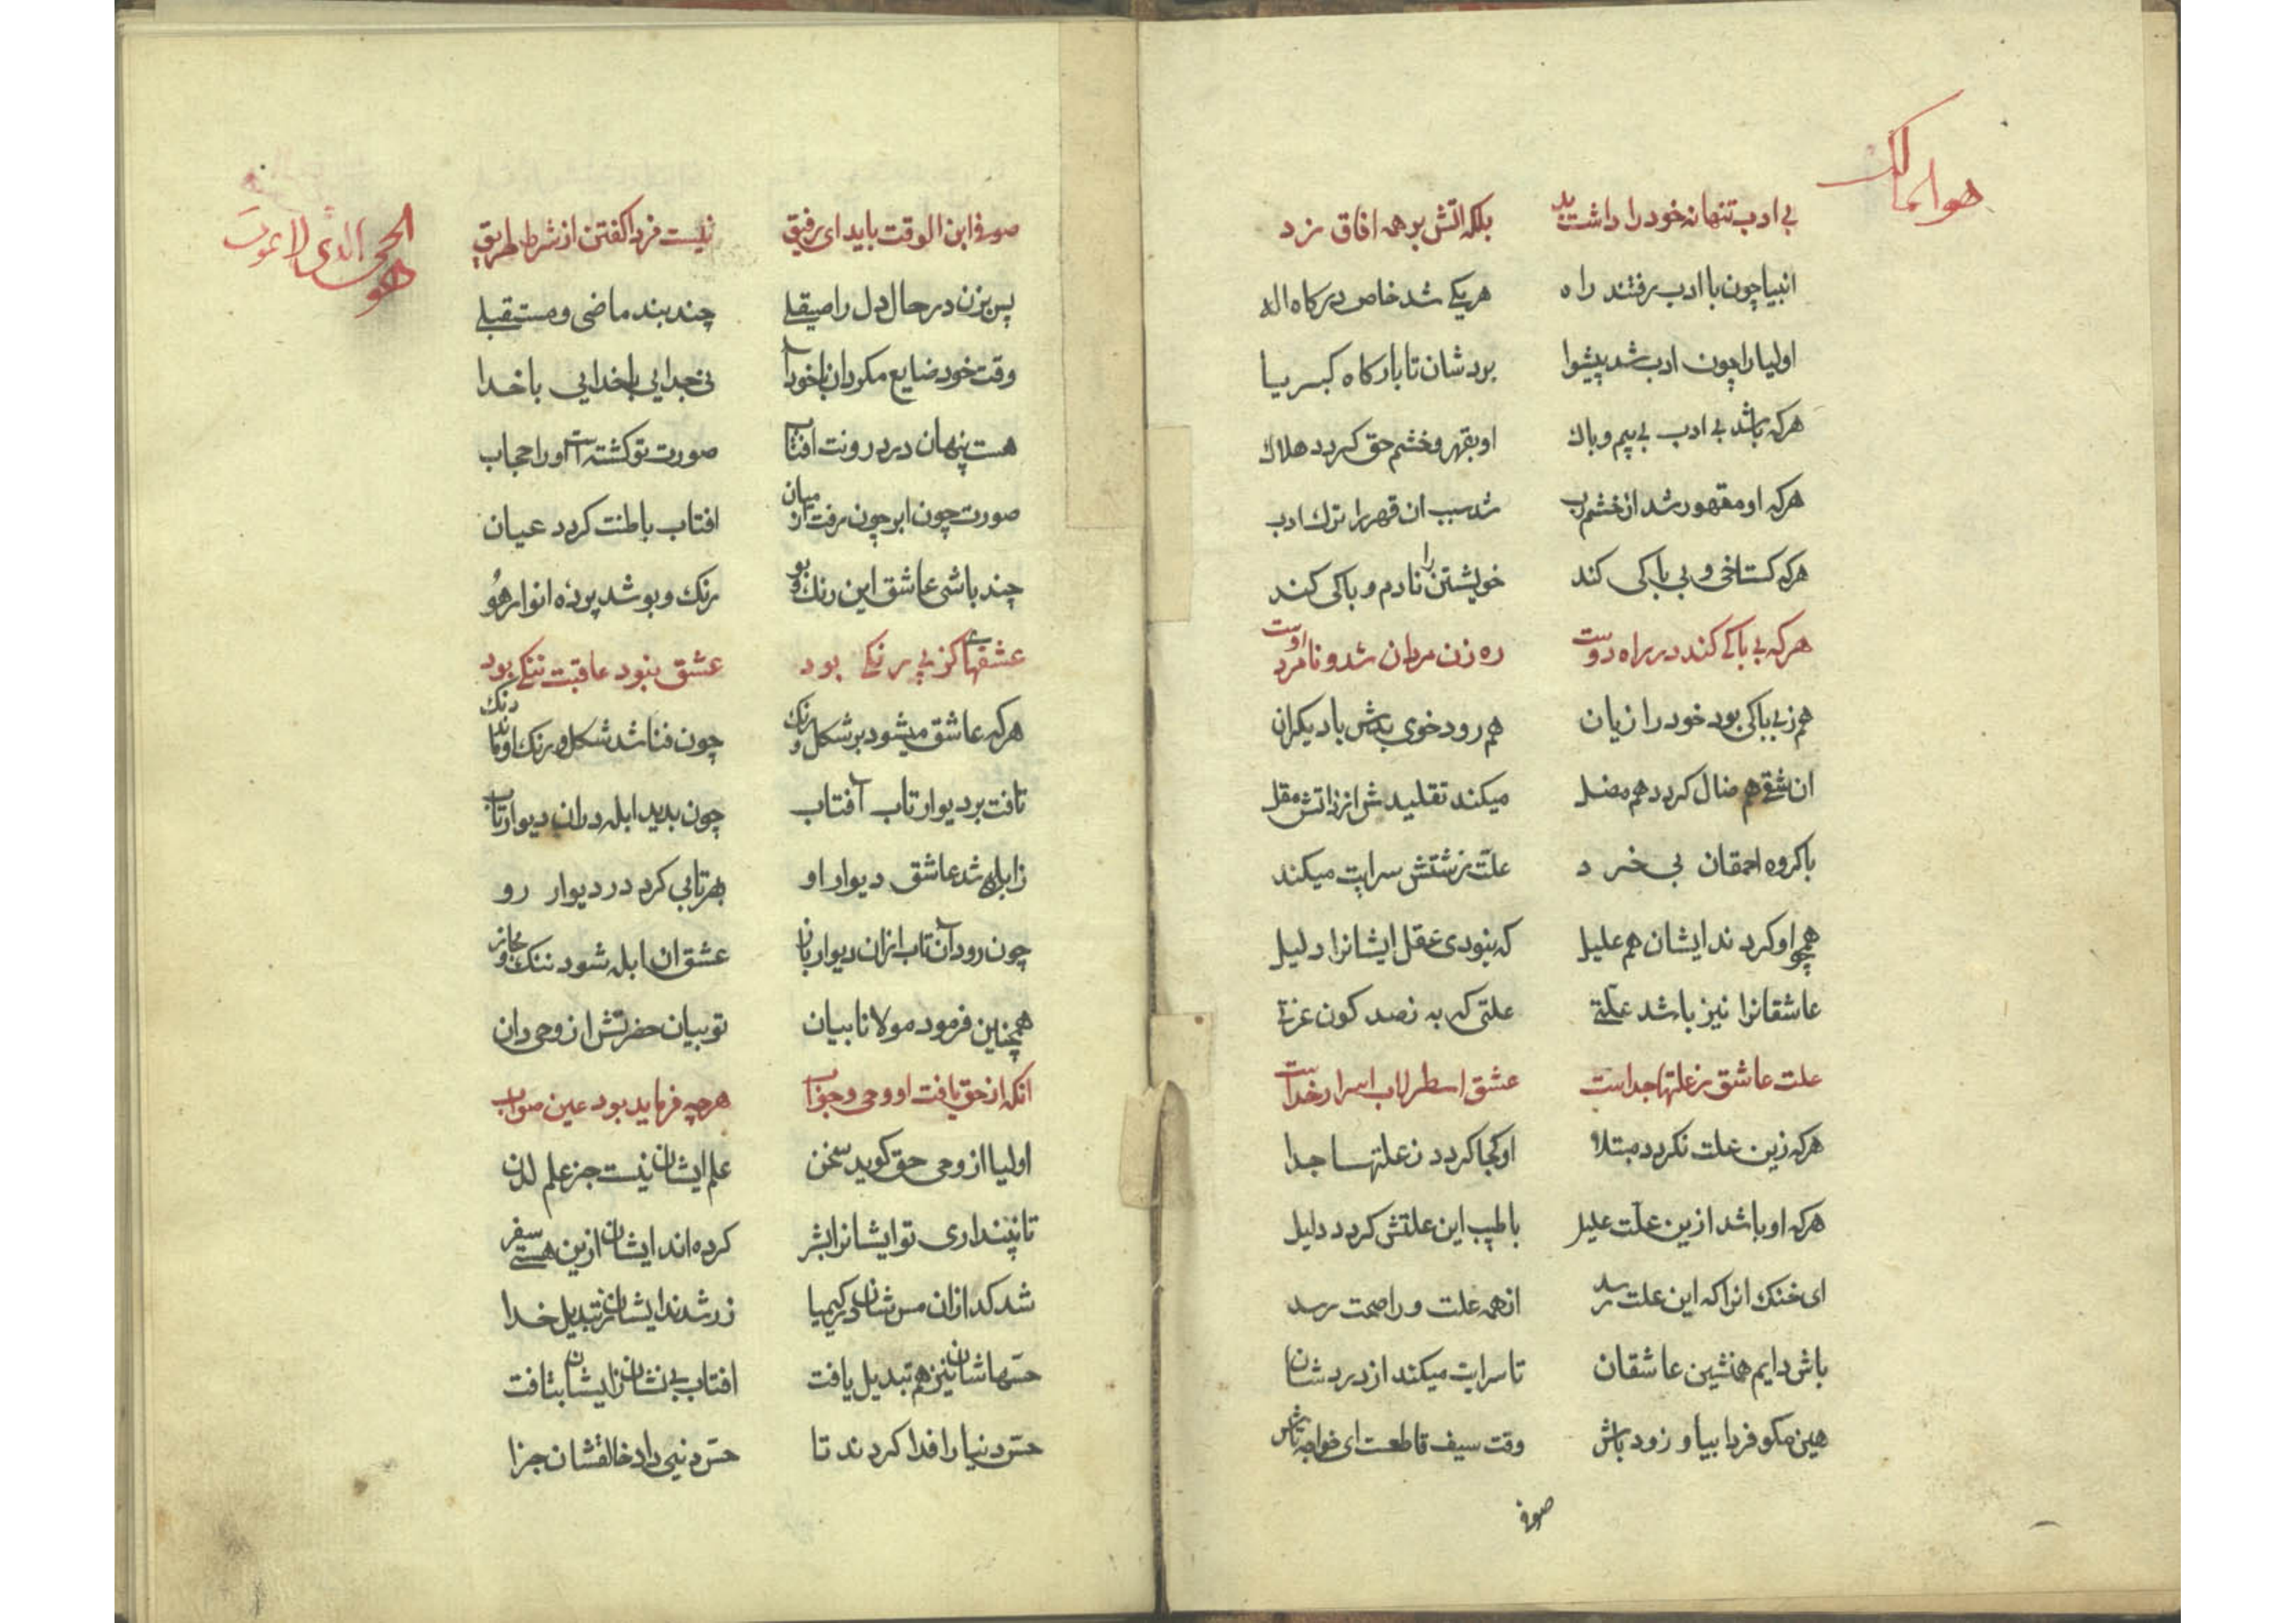 هو المالك
بی ادب تنها نه خود را داشت بد بلکه اتش بر همه افاق زد
انبیا چون با ادب رفتند راه هر یکی شد خاص درکاه اله
اولیا را چون ادب شد پیشوا بردشان تا بارکاه کبریا
هرکه باشد بی ادب بی بیم و باك او بقهر و خشم حق کردد هلاك
هرکه او مقهور شد از خشم رب شد سبب ان قهر را ترك ادب
هرکه کستاخی و بی باکی کند خویشتن را نادم و باکی کند
هرکه بی باکی کند در راه دوست ره زن مردان شد و نامرد اوست
هم ز بی باکی بود خود را زیان هم رود خوی بدش با دیکران
ان شقی هم ضال کردد هم مضل میکند تقلیدش از زاتش مقل
با کروه احمقان بی خرد علّت زشتش سرایت میکند
همچو او کردند ایشان هم علیل که نبودی عقل ایشانرا دلیل
عاشقانرا نیز باشد علّتی علتی که به نصد کون عزتی
علت عاشق ز علتها جداست عشق اسطرلاب اسرار خداست
هرکه زین علت نکردد مبتلا او کجا کردد ز علتها جدا
هرکه او باشد ازین علّت علیل با طبیب این علتش کردد دلیل
ای خنك انرا که این علت رسد از همه علت ورا صحت رسد
باش دایم همنشین عاشقان تا سرایت میکند از درد شان
هین مکو فردا بیا و زود باش وقت سیف قاطعست ای خواجه تاش
صوفی
هو الحی الذی لا یموت
صوفی ابن الوقت باید ای رفیق نیست فردا کفتن از شرط طریق
پس بزن در حال دل را صیقلی چند بند ماضی و مستقبلی
وقت خود ضایع مکردان با خودآ نی جدایی با خدایی با خدا
هست پنهان در درونت افتاب صورت تو کشته است او را حجاب
صورت چون ابر چون رفت از میان افتاب باطنت کردد عیان
چند باشی عاشق این رنك و بو رنك و بو شد پردهٔ انوار هُو
عشقهای کز پی رنکی بود عشق نبود عاقبت ننکی بود
هرکه عاشق میشود بر شکل و رنك چون فنا شد شکل و رنك او ماند دنك
تافت بر دیوار تاب آفتاب چون بدید ابله در ان دیوار تاب
ز ابلهی شد عاشق دیوار او بهر تابی کرد در دیوار رو
چون رود آن تاب ازان دیوار باز عشق ان ابله شود ننك و مجاز
همچنین فرمود مولانا بیان تو بیان حضرتش از وحی دان
انکه از حق یافت او وحی و جواب هرچه فرماید بود عین صواب
اولیا از وحی حق کوید سخن علم ایشان نیست جز علم لدن
تا نپنداری تو ایشانرا بشر کرده اند ایشان ازین هستی سفر
شد کدازان مس شان در کیمیا زر شدند ایشان ز تبدیل خدا
حسّهاشان نیز هم تبدیل یافت افتاب بی نشان زایشان بتافت
حسّ دنیا را فدا کردند تا حسّ دنیی داد خالقشان جزا